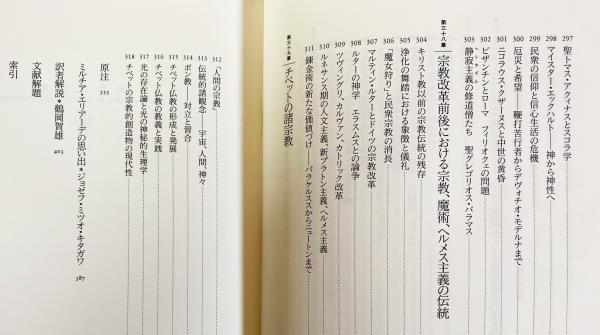 297 聖トマス・アクィナスとスコラ学
298 マイスター・エックハルト――神から神性へ
299 民衆の信仰と信心生活の危機
300 厄災と希望――鞭打苦行者からデヴォチオ・モデルナまで
301 ニコラウス・クザーヌスと中世の黄昏
302 ビザンチンとローマ フィリオクエの問題
303 静寂主義の修道僧たち 聖グレゴリオス・パラマス
第三十八章 宗教改革前後における宗教、魔術、ヘルメス主義の伝統
304 キリスト教以前の宗教伝統の残存
305 浄化の舞踏における象徴と儀礼
306 「魔女狩り」と民衆宗教の消長
307 マルティン・ルターとドイツの宗教改革
308 ルターの神学 エラスムスとの論争
309 ツヴィングリ、カルヴァン、カトリック改革
310 ルネサンス期の人文主義、新プラトン主義、ヘルメス主義
311 錬金術の新たな価値づけ――パラケルススからニュートンまで
第三十九章 チベットの諸宗教
312 「人間の宗教」
313 伝統的諸観念 宇宙、人間、神々
314 ボン教――対立と習合
315 チベット仏教の形成と発展
316 チベット仏教の教義と実践
317 光の存在論と光の神秘的生理学
318 チベットの宗教的創造物の現代性
原注 333
ミルチア・エリアーデの思い出*ジョゼフ・ミツオ・キタガワ 387
訳者解説*鶴岡賀雄 403
文献解題
索引